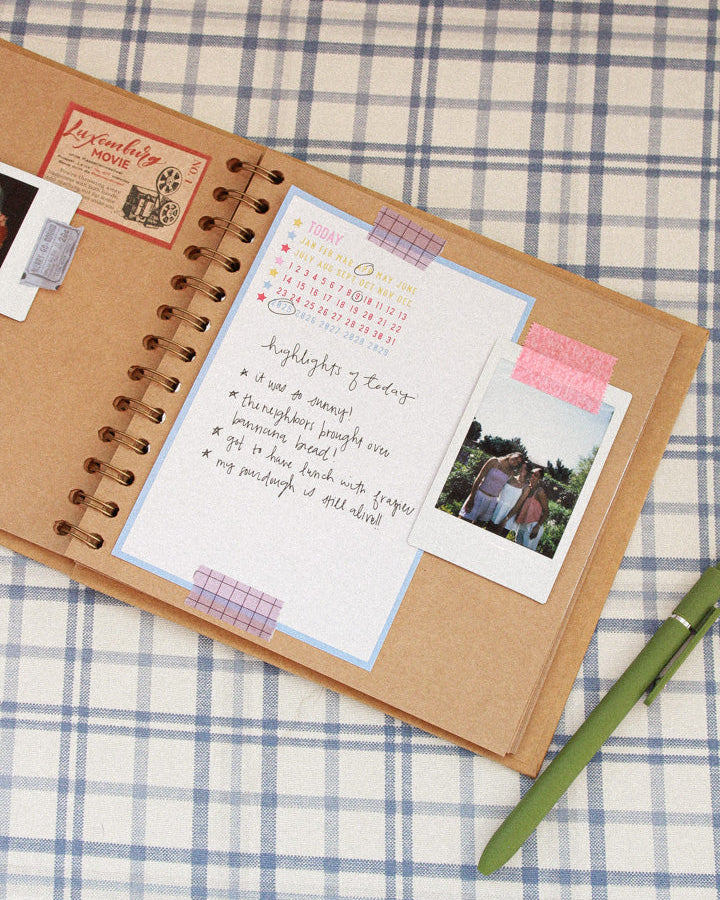 Luxemburg
MOVIE
No 1
TODAY
JAN FEB MAR APR MAY JUNE
JULY AUG SEPT OCT NOV DEC
1 2 3 4 5 6 7 8 9 10 11 12 13
14 15 16 17 18 19 20 21 22
23 24 25 26 27 28 29 30 31
2025 2026 2027 2028 2029
highlights of today
* it was so sunny!
* the neighbors brought over
bannana bread!
* got to have lunch with frazier
* my sourdough is still alive!!